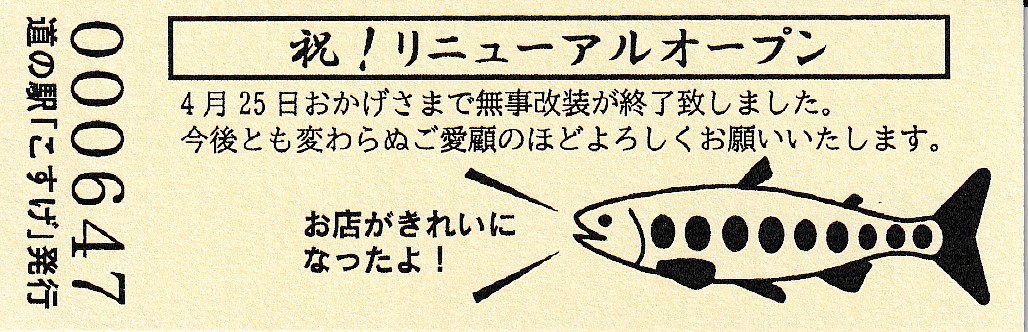 祝！リニューアルオープン
4月25日おかげさまで無事改装が終了致しました。
今後とも変わらぬご愛顧のほどよろしくお願いいたします。
お店がきれいに
なったよ！
000647
道の駅「こすげ」発行